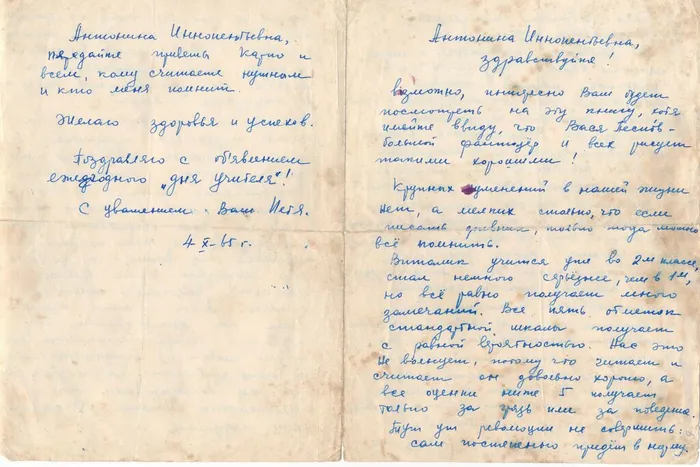 Антонина Иннокентьевна,
передайте приветы Карло и
всем, кому считаете нужным
и кто меня помнит.
Желаю здоровья и успехов.
Поздравляю с объявлением
ежегодного „дня учителя"!
С уважением Ваш Петя.
4 X-65 г.
Антонина Иннокентьевна,
здравствуйте!
Возможно, интересно Вам будет
посмотреть на эту книгу, хотя
имейте ввиду, что Вася Песков-
большой фантазёр и всех рисует
такими хорошими!
Крупных изменений в нашей жизни
нет, а мелких столько, что если
писать дневник, только тогда можно
всё помнить.
Виталик учится уже во 2м классе,
стал немного серьёзнее, чем в 1м,
но всё равно получает много
замечаний. Все пять отметок
стандартной школы получает
с равной вероятностью. Нас это
не волнует, потому что читает и
считает он довольно хорошо, а
все оценки ниже 5 получает
только за грязь или за поведение.
Тут уж революции не совершить:
сам постепенно придёт в норму